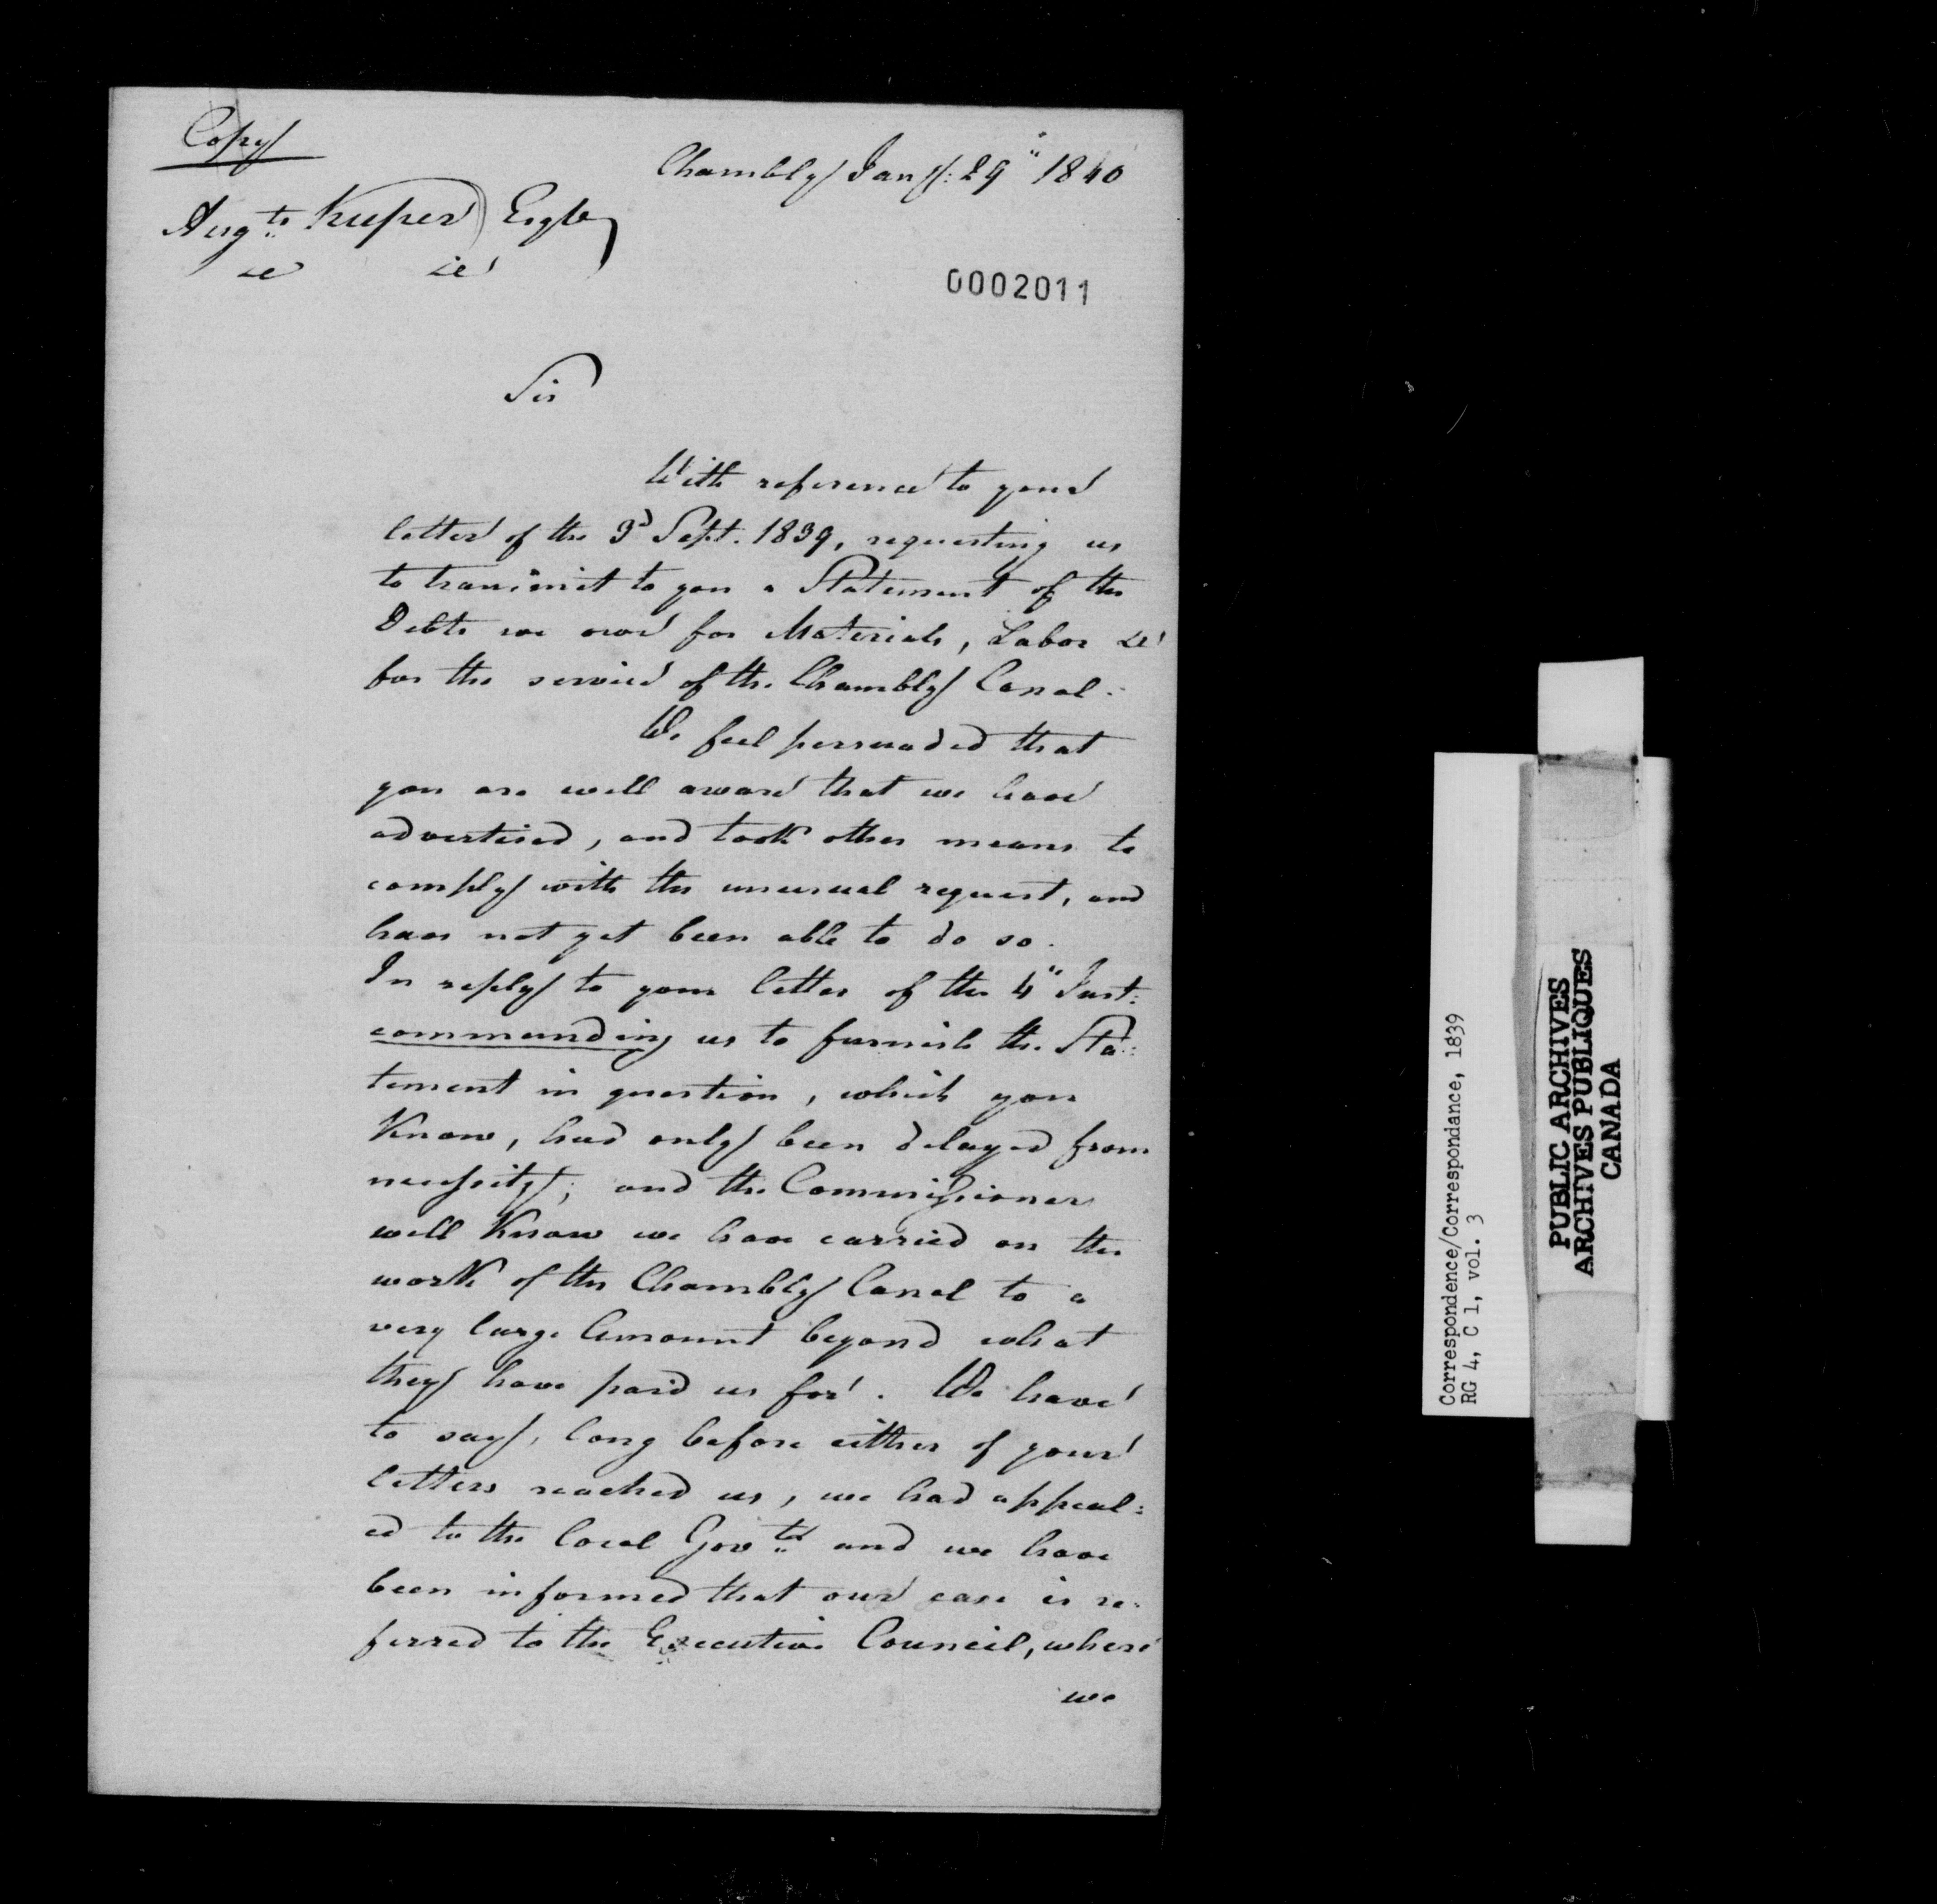 Copy
Chambly Jany: 29" 1840
Augts Kuper Esqre
&c &c
0002011
Sir
With reference to your
letter of the 3d Sept. 1839, requesting us
to transmit to you a Statement of the
Debts we owe for Materials, Labor &c
for the service of the Chambly Canal.
We feel persuaded that
you are well aware that we have
advertised, and took other means to
comply with the unusual request, and
have not yet been able to do so.
In reply to your letter of the 4" Inst:
commanding us to furnish the Sta:
tement in question, which you
Know, had only been delayed from
necessity; and the Commissioners
well Know we have carried on the
work of the Chambly Canal to a
very large Amount beyond what
they have paid us for. We have
to say, long before either of your
letters reached us, we had appeal:
ed to the local Govt and we have
been informed that our case is re:
ferred to the Executive Council, where
we
Correspondence/Correspondance, 1839
RG 4, C 1, vol. 3
PUBLIC ARCHIVES
ARCHIVES PUBLIQUES
CANADA